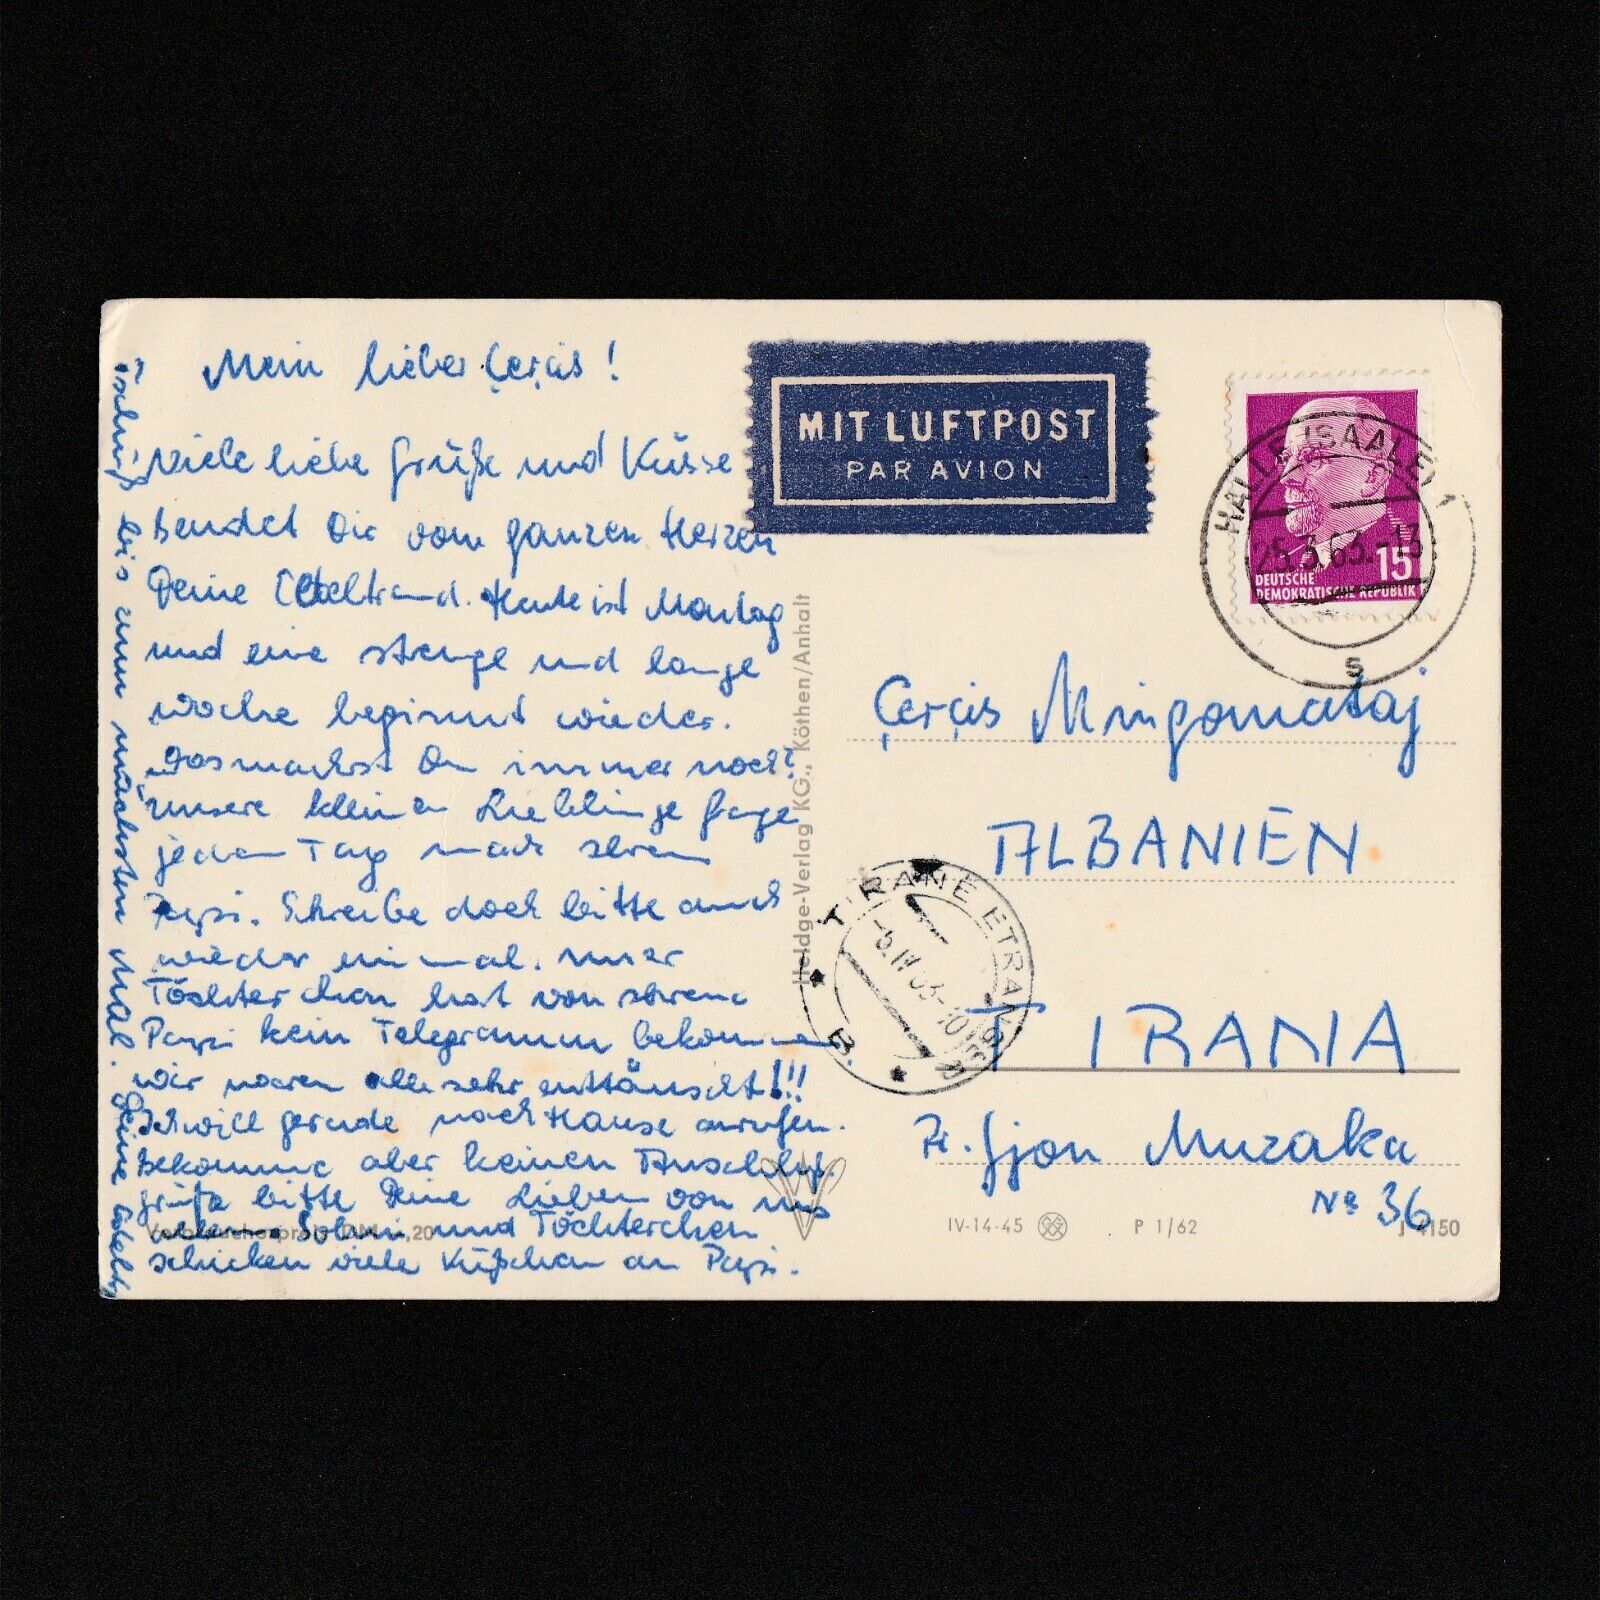 Mein lieber Çerçis!
Viele liebe Grüße und Küsse
sendet Dir vom ganzen Herzen
Deine Edeltraud. Heute ist Montag
und eine strenge und lange
Woche beginnt wieder.
Was machst Du immer noch?
Unsere kleinen Lieblinge
jeden Tag nach ihrem
Papi. Schreibe doch bitte auch
wieder einmal. Unser
Töchterchen hat von ihrem
Papi kein Telegramm bekommen.
Wir waren alle sehr enttäuscht!!!
Ich will gerade nach Hause anrufen.
Bekomme aber keinen Anschluß.
Grüße bitte Deine Lieben von uns
allen Sohni und Töchterchen
schicken viele Küßchen an Papi.
Tschüß bis zum nächsten Mal.
Deine
MIT LUFTPOST
PAR AVION
HALLE (SAALE) 1
25.3.63.-13
s
15
DEUTSCHE
DEMOKRATISCHE REPUBLIK
Çerçis Mingomataj
ALBANIEN
TIRANA
Rr. Gjon Muzaka
Nº 36
TIRANË ETRANGER
-5.IV.63.-10
Heldge-Verlag KG., Köthen/Anhalt
Verbraucherpreis DM -,20
IV-14-45
P 1/62
J 4150